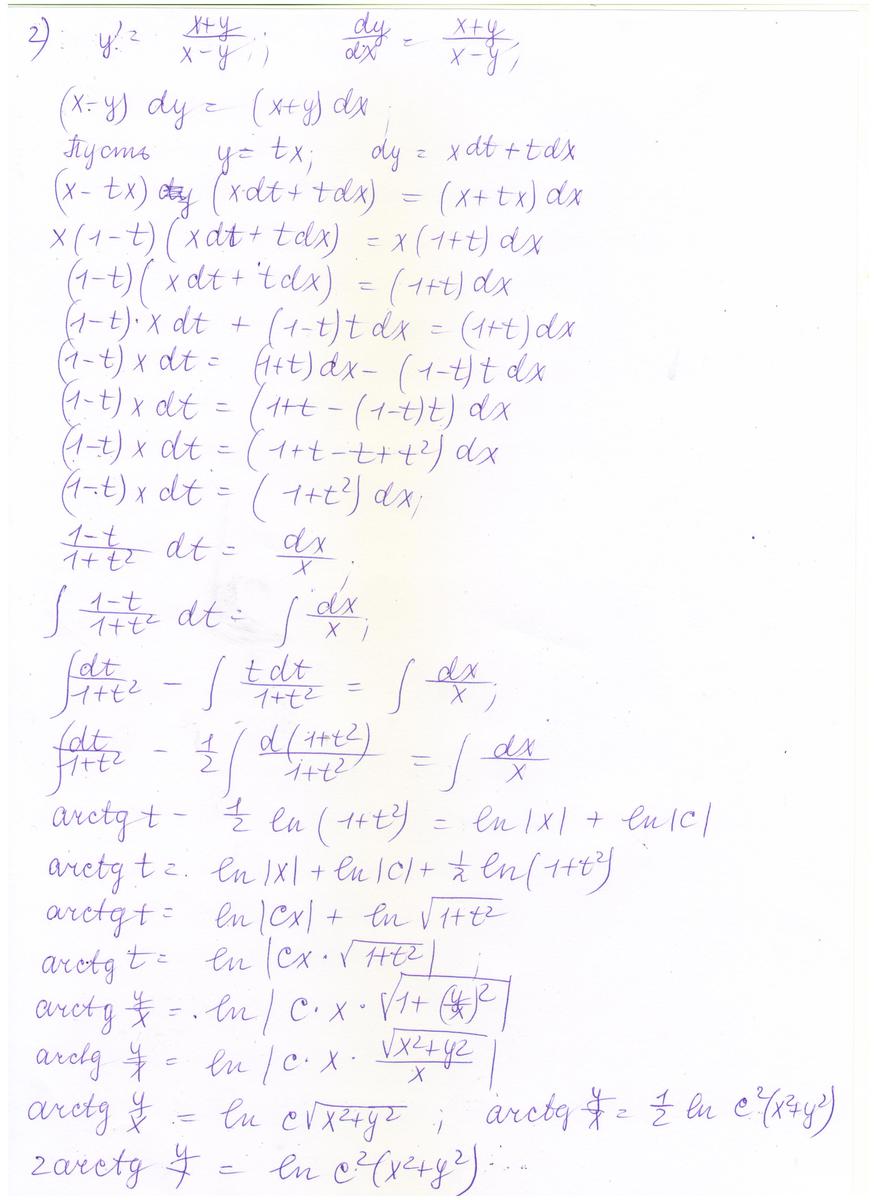 2) y' = (x+y)/(x−y); dy/dx = (x+y)/(x−y);
(x−y) dy = (x+y) dx;
Пусть y = tx; dy = xdt + tdx
(x − tx) (x·dt + tdx) = (x + tx) dx
x(1−t)(xdt + tdx) = x(1+t) dx
(1−t)(xdt + tdx) = (1+t) dx
(1−t)·x dt + (1−t)t dx = (1+t) dx
(1−t) x dt = (1+t) dx − (1−t) t dx
(1−t) x dt = (1+t − (1−t)t) dx
(1−t) x dt = (1+t−t+t²) dx
(1−t) x dt = (1+t²) dx;
(1−t)/(1+t²) dt = dx/x;
∫ (1−t)/(1+t²) dt = ∫ dx/x;
∫ dt/(1+t²) − ∫ t dt/(1+t²) = ∫ dx/x;
∫ dt/(1+t²) − 1/2 ∫ d(1+t²)/(1+t²) = ∫ dx/x
arctg t − 1/2 ln(1+t²) = ln|x| + ln|c|
arctg t = ln|x| + ln|c| + 1/2 ln(1+t²)
arctg t = ln|cx| + ln √(1+t²)
arctg t = ln|cx·√(1+t²)|;
arctg y/x = ln|c·x·√(1+(y/x)²)|
arctg y/x = ln|c·x·√(x²+y²)/x|
arctg y/x = ln c√(x²+y²); arctg y/x = 1/2 ln c²(x²+y²)
2arctg y/x = ln c²(x²+y²)...